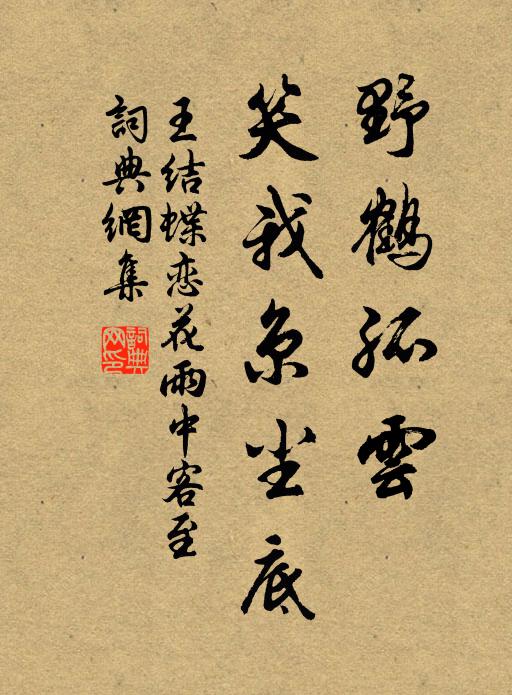 野鹤孤雲
笑我京尘底
王结蝶恋花雨中客至
詞典網集
詞典网印